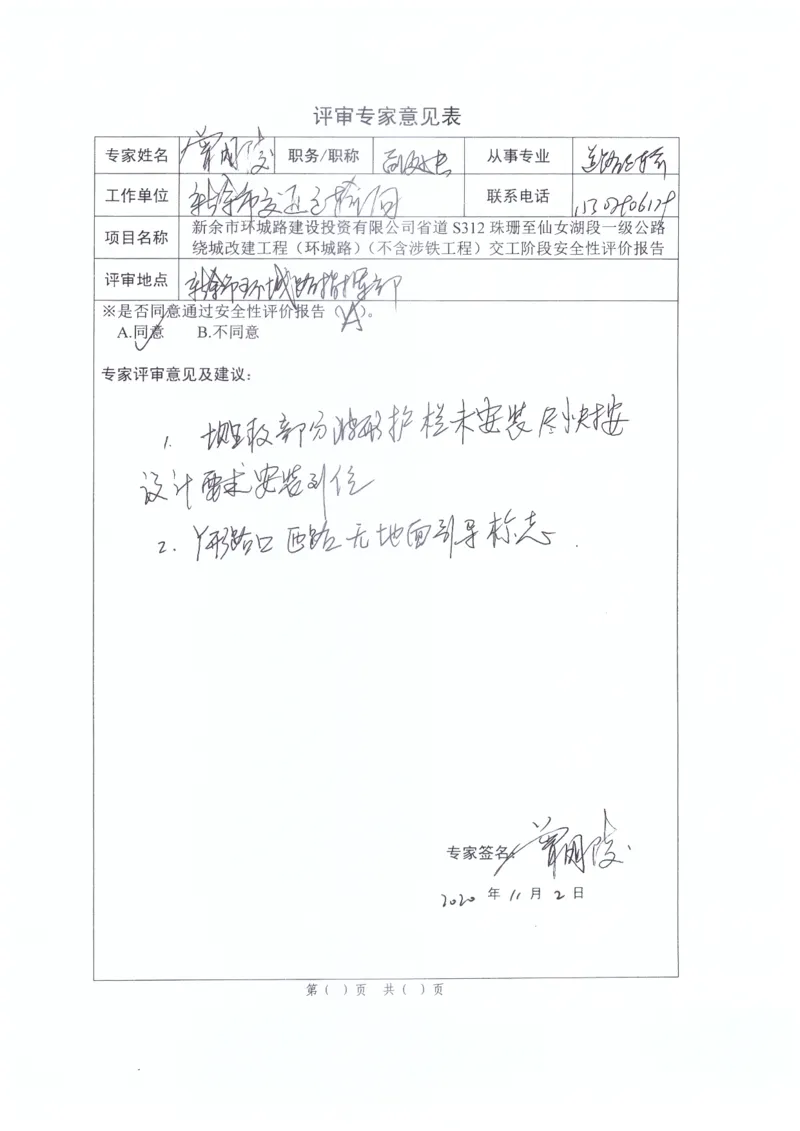 评审专家意见表
专家姓名 曾明陵 职务/职称 从事专业 道路运输
工作单位 新余市交通运输局 联系电话
项目名称 新余市环城路建设投资有限公司省道 S312 珠珊至仙女湖段一级公路
绕城改建工程（环城路）（不含涉铁工程）交工阶段安全性评价报告
评审地点 新余市环城路指挥部
※是否同意通过安全性评价报告（A）。
A.同意 B.不同意
专家评审意见及建议：
1. 部分波形护栏未安装尽快按
设计要求安装到位
2. Y形路口匝路无地面引导标志.
专家签名: 曾明陵
2020 年 11 月 2 日
第（ ）页 共（ ）页